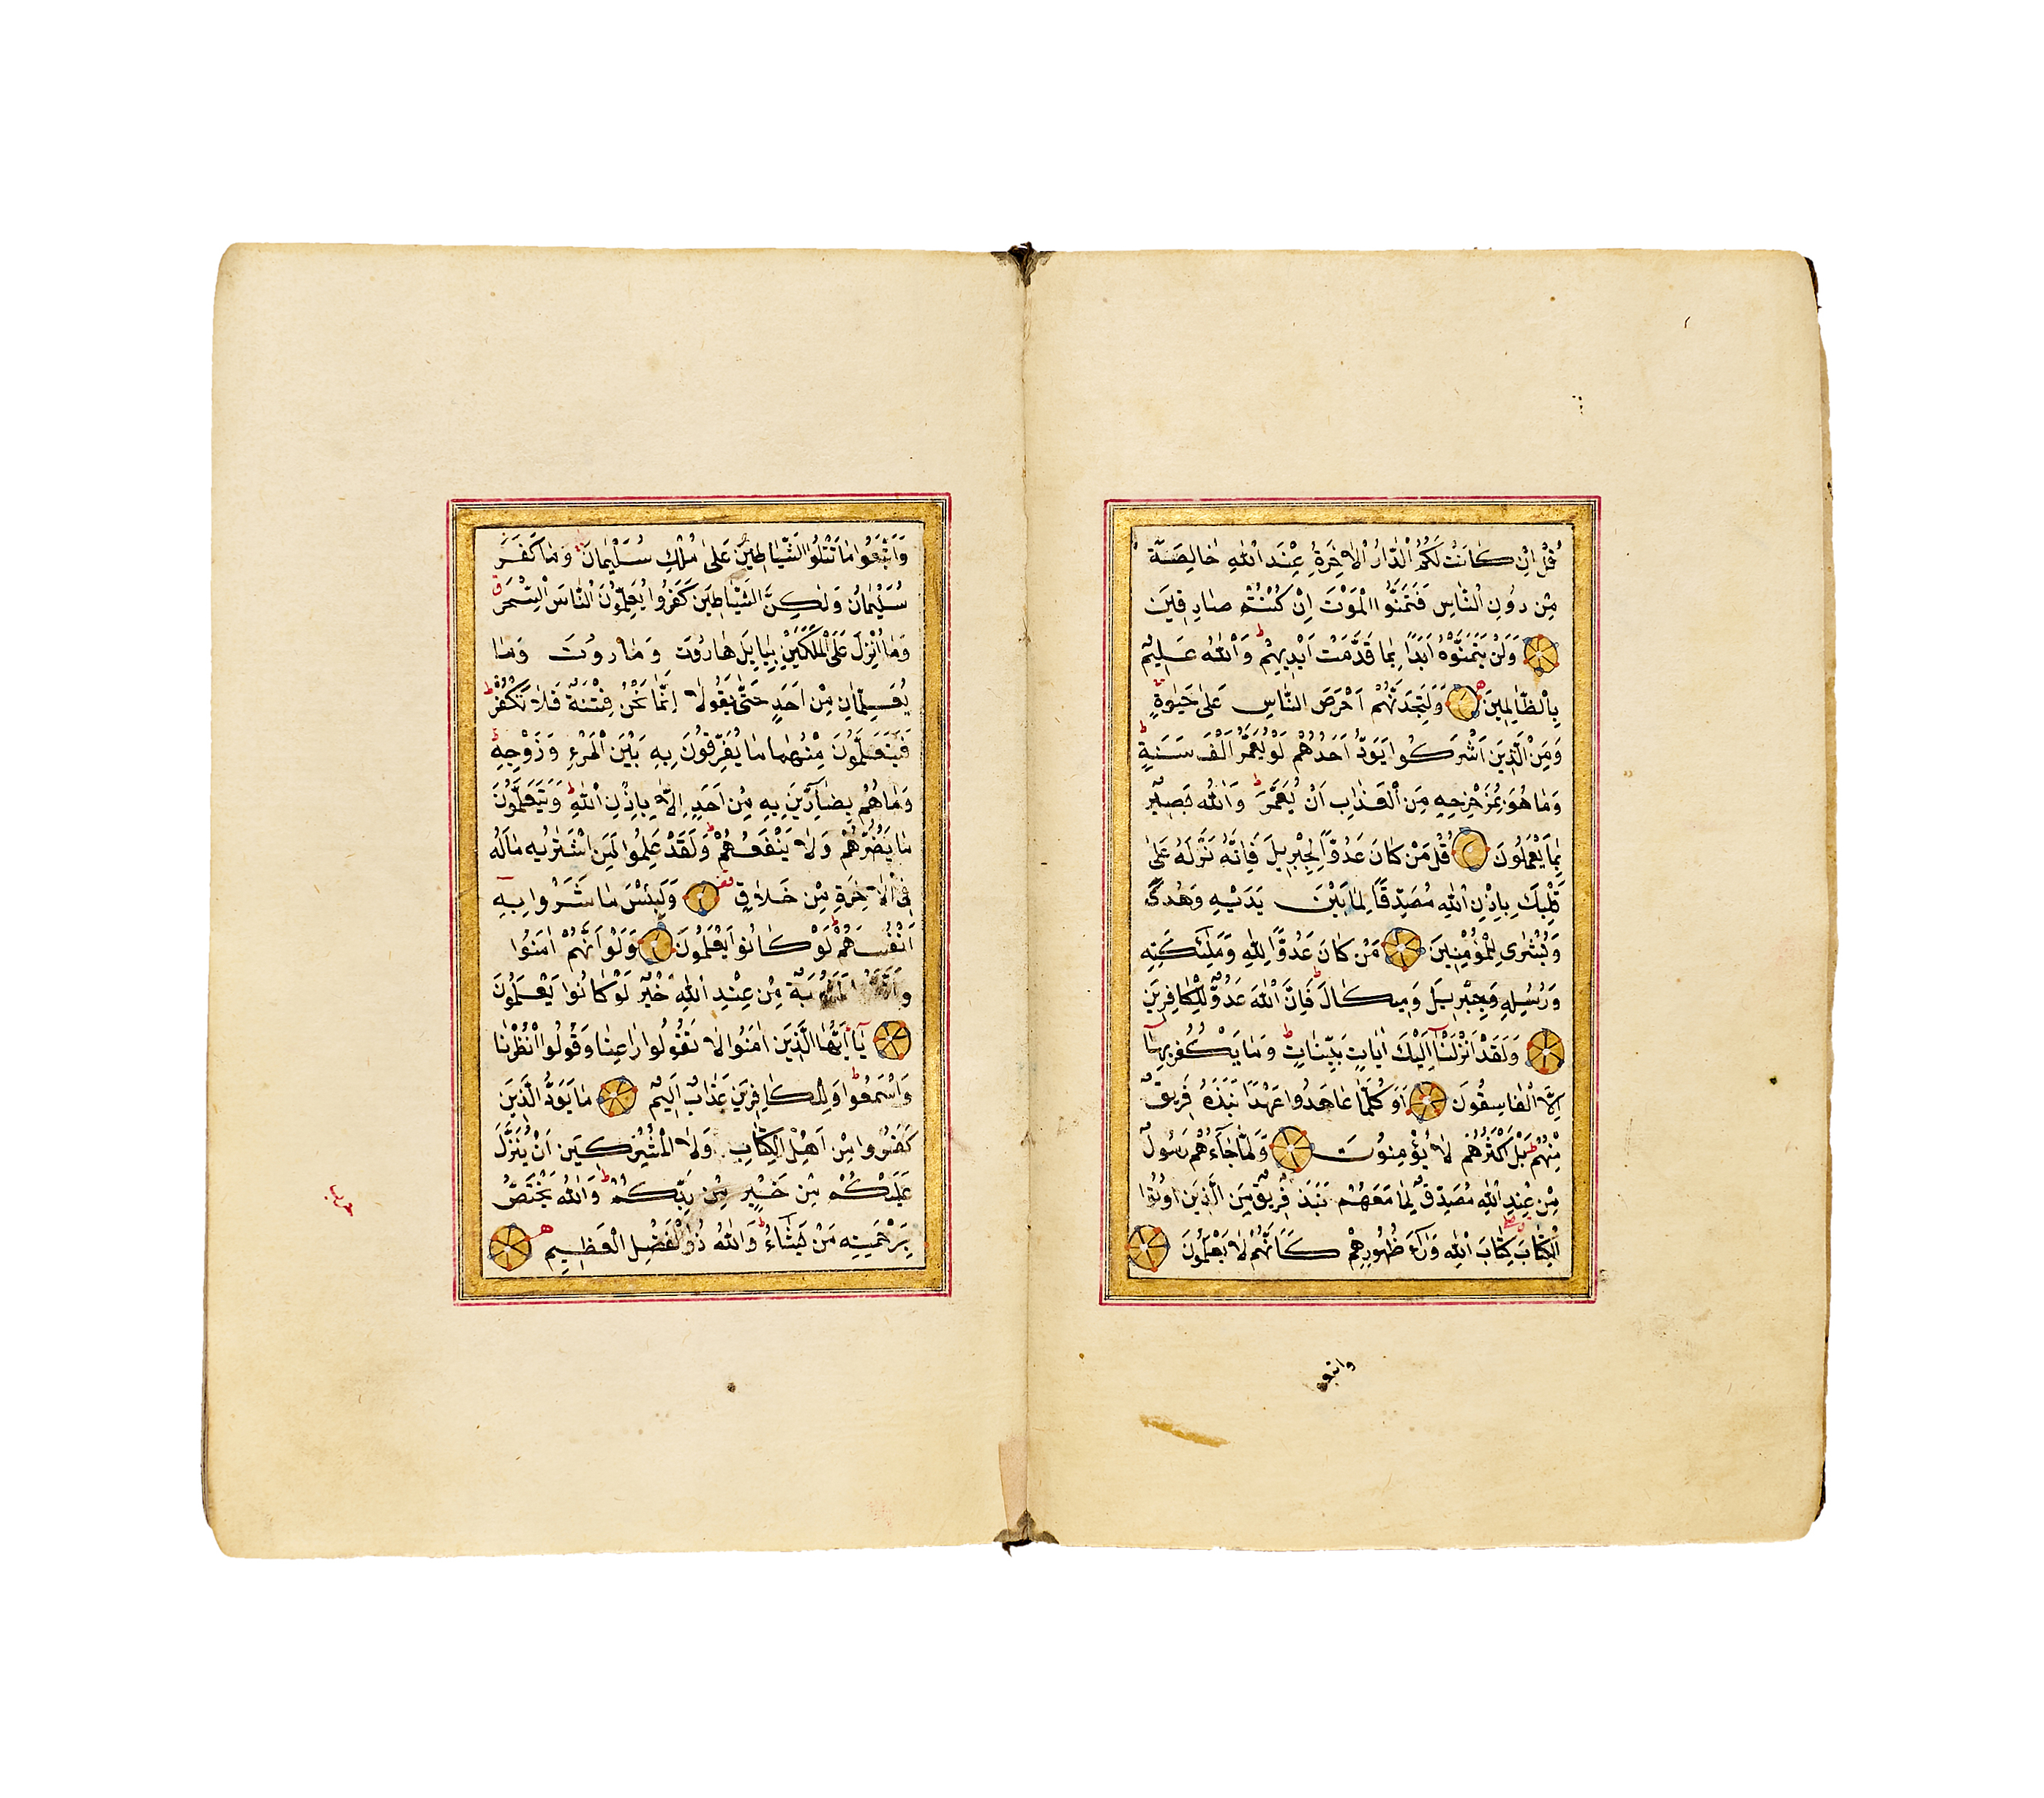 قُلْ اِنْ كَانَتْ لَكُمُ الدَّارُ الْاٰخِرَةُ عِنْدَ اللّٰهِ خَالِصَةً
مِنْ دُونِ النَّاسِ فَتَمَنَّوُا الْمَوْتَ اِنْ كُنْتُمْ صَادِقِينَ
وَلَنْ يَتَمَنَّوْهُ اَبَدًا بِمَا قَدَّمَتْ اَيْدِيهِمْ ط وَاللّٰهُ عَلِيمٌ
بِالظَّالِمِينَ وَلَتَجِدَنَّهُمْ اَحْرَصَ النَّاسِ عَلٰى حَيٰوةٍ
وَمِنَ الَّذِينَ اَشْرَكُوا يَوَدُّ اَحَدُهُمْ لَوْ يُعَمَّرُ اَلْفَ سَنَةٍ ط
وَمَا هُوَ بِمُزَحْزِحِهِ مِنَ الْعَذَابِ اَنْ يُعَمَّرَ ط وَاللّٰهُ بَصِيرٌ
بِمَا يَعْمَلُونَ قُلْ مَنْ كَانَ عَدُوًّا لِجِبْرِيلَ فَاِنَّهُ نَزَّلَهُ عَلٰى
قَلْبِكَ بِاِذْنِ اللّٰهِ مُصَدِّقًا لِمَا بَيْنَ يَدَيْهِ وَهُدًى
وَبُشْرٰى لِلْمُؤْمِنِينَ مَنْ كَانَ عَدُوًّا لِلّٰهِ وَمَلٰئِكَتِهِ
وَرُسُلِهِ وَجِبْرِيلَ وَمِيكَالَ فَاِنَّ اللّٰهَ عَدُوٌّ لِلْكَافِرِينَ
وَلَقَدْ اَنْزَلْنَا اِلَيْكَ اٰيَاتٍ بَيِّنَاتٍ ط وَمَا يَكْفُرُ بِهَا
اِلَّا الْفَاسِقُونَ اَوَكُلَّمَا عَاهَدُوا عَهْدًا نَبَذَهُ فَرِيقٌ
مِنْهُمْ ط بَلْ اَكْثَرُهُمْ لَا يُؤْمِنُونَ وَلَمَّا جَاءَهُمْ رَسُولٌ
مِنْ عِنْدِ اللّٰهِ مُصَدِّقٌ لِمَا مَعَهُمْ نَبَذَ فَرِيقٌ مِنَ الَّذِينَ اُوتُوا
الْكِتَابَ كِتَابَ اللّٰهِ وَرَاءَ ظُهُورِهِمْ كَاَنَّهُمْ لَا يَعْلَمُونَ
واتبعوا
وَاتَّبَعُوا مَا تَتْلُوا الشَّيَاطِينُ عَلٰى مُلْكِ سُلَيْمَانَ وَمَا كَفَرَ
سُلَيْمَانُ وَلٰكِنَّ الشَّيَاطِينَ كَفَرُوا يُعَلِّمُونَ النَّاسَ السِّحْرَ ق
وَمَا اُنْزِلَ عَلَى الْمَلَكَيْنِ بِبَابِلَ هَارُوتَ وَمَارُوتَ وَمَا
يُعَلِّمَانِ مِنْ اَحَدٍ حَتّٰى يَقُولَا اِنَّمَا نَحْنُ فِتْنَةٌ فَلَا تَكْفُرْ ط
فَيَتَعَلَّمُونَ مِنْهُمَا مَا يُفَرِّقُونَ بِهِ بَيْنَ الْمَرْءِ وَزَوْجِهِ ط
وَمَا هُمْ بِضَارِّينَ بِهِ مِنْ اَحَدٍ اِلَّا بِاِذْنِ اللّٰهِ ط وَيَتَعَلَّمُونَ
مَا يَضُرُّهُمْ وَلَا يَنْفَعُهُمْ ط وَلَقَدْ عَلِمُوا لَمَنِ اشْتَرٰيهُ مَا لَهُ
فِى الْاٰخِرَةِ مِنْ خَلَاقٍ وَلَبِئْسَ مَا شَرَوْا بِهِ
اَنْفُسَهُمْ ط لَوْ كَانُوا يَعْلَمُونَ وَلَوْ اَنَّهُمْ اٰمَنُوا
مِنْ عِنْدِ اللّٰهِ خَيْرٌ لَوْ كَانُوا يَعْلَمُونَ
يَا اَيُّهَا الَّذِينَ اٰمَنُوا لَا تَقُولُوا رَاعِنَا وَقُولُوا انْظُرْنَا
وَاسْمَعُوا ط وَلِلْكَافِرِينَ عَذَابٌ اَلِيمٌ مَا يَوَدُّ الَّذِينَ
كَفَرُوا مِنْ اَهْلِ الْكِتَابِ وَلَا الْمُشْرِكِينَ اَنْ يُنَزَّلَ
عَلَيْكُمْ مِنْ خَيْرٍ مِنْ رَبِّكُمْ ط وَاللّٰهُ يَخْتَصُّ
بِرَحْمَتِهِ مَنْ يَشَاءُ ط وَاللّٰهُ ذُو الْفَضْلِ الْعَظِيمِ